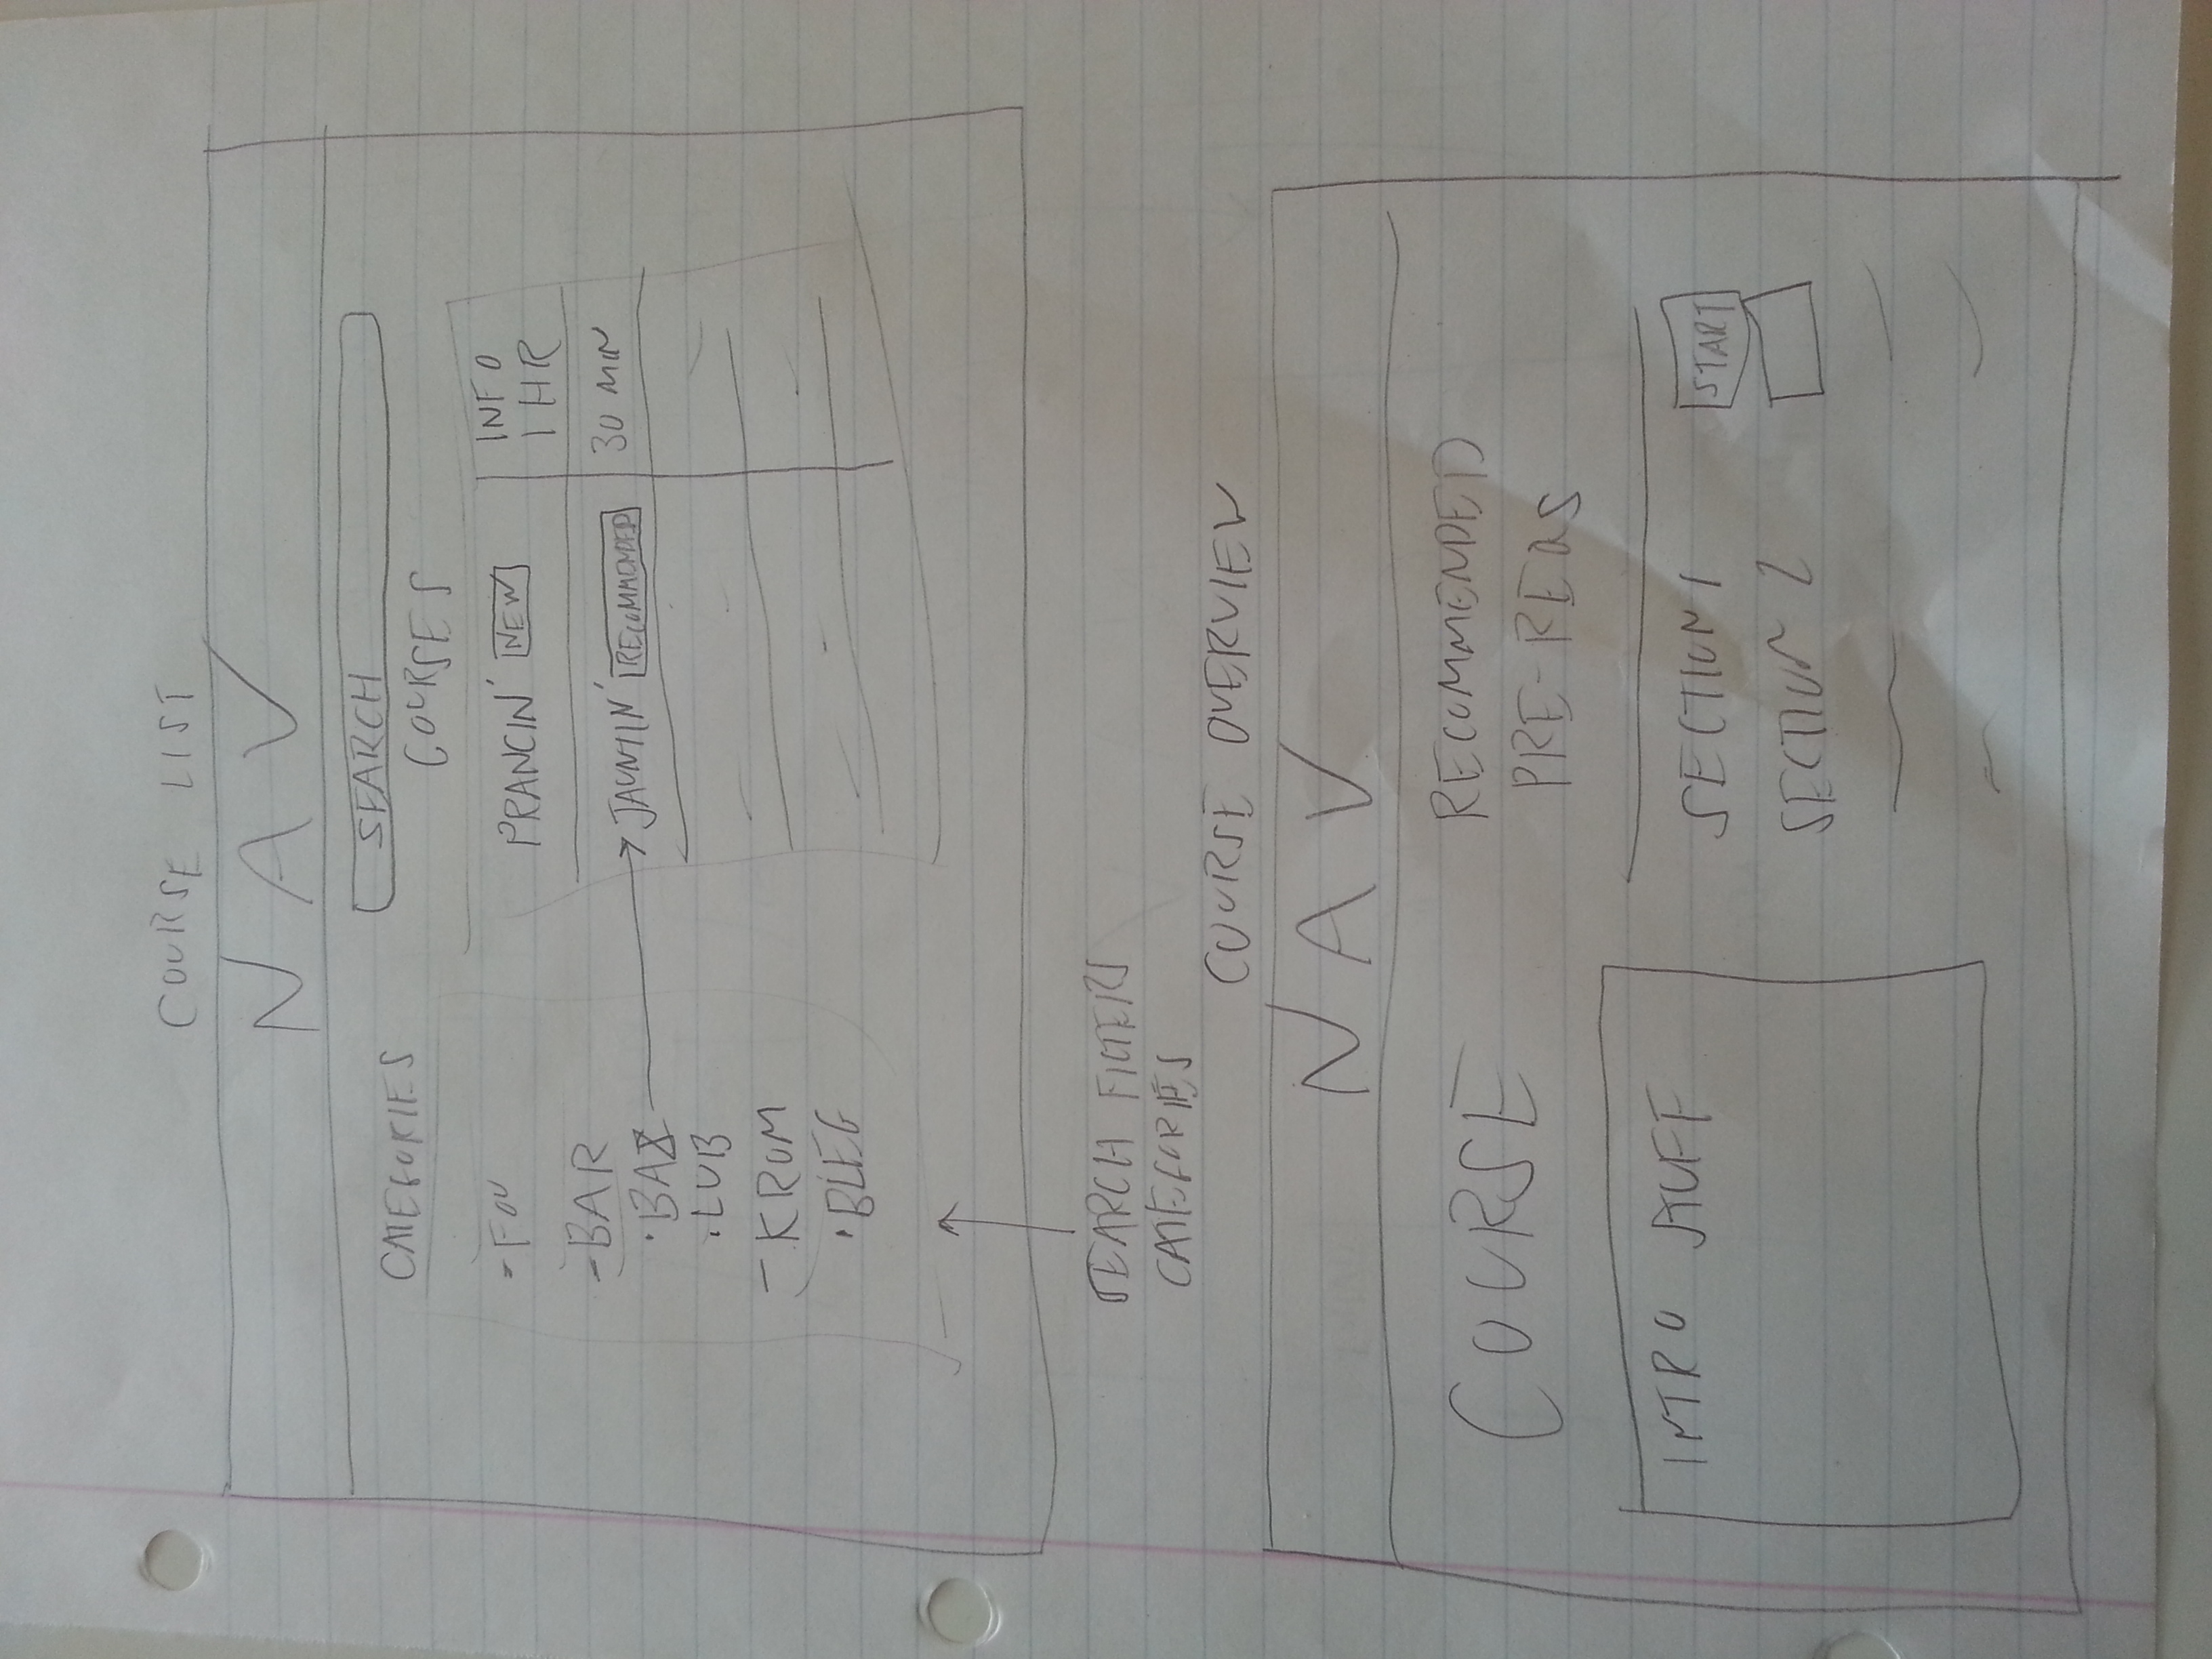 COURSE LIST
NAV
SEARCH
CATEGORIES
COURSES
-FOO
-BAR
·BAZ
·LUB
-KROM
·BLEG
PRANCIN' NEW
INFO
1 HR
JAUNTIN' RECOMMENDED
30 MIN
SEARCH FILTERS
CATEGORIES
COURSE OVERVIEW
NAV
COURSE
RECOMMENDED
PRE-REQS
INTRO STUFF
SECTION 1 START
SECTION 2